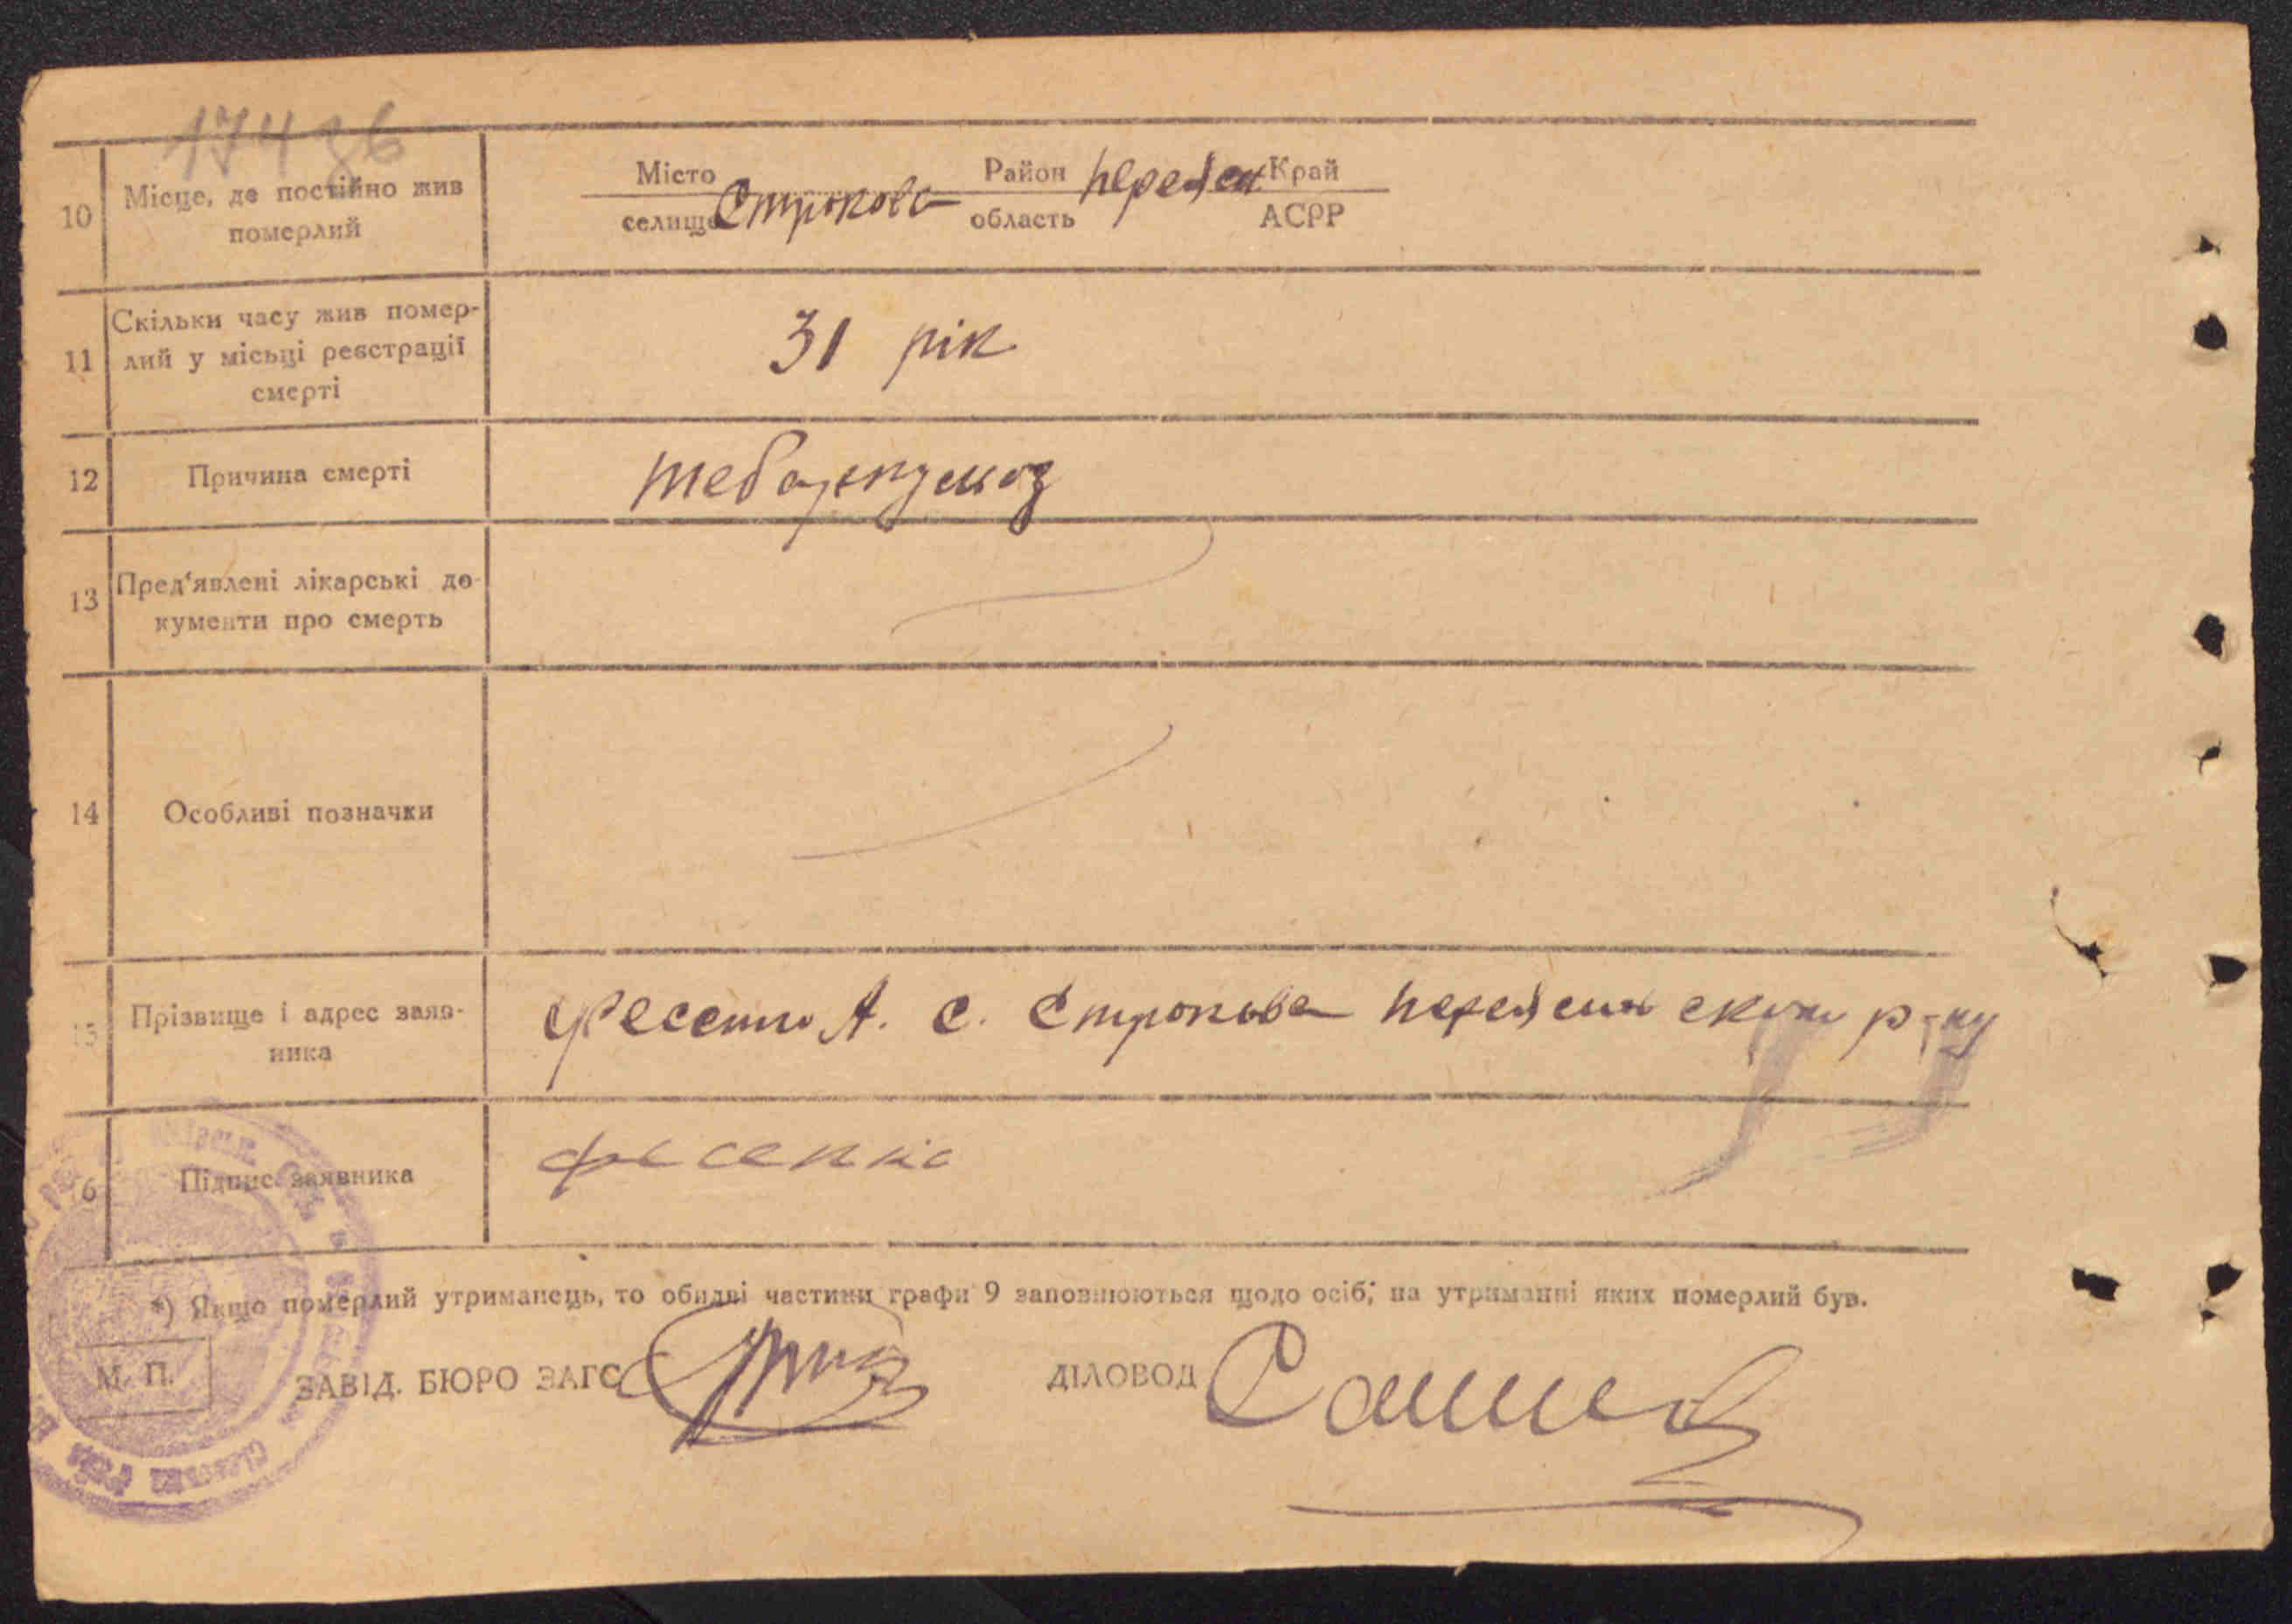 17486
10 Місце, де постійно жив померлий
Місто Строкова Район Край
селище область АСРР
11 Скільки часу жив помер-
лий у місьці реєстрації
смерті
31 рік
12 Причина смерті
13 Пред‘явлені лікарські до-
кументи про смерть
14 Особливі позначки
15 Прізвище і адрес заяв-
ника
А. С. Строкова р-ну
6 Підпис заявника
фесенко
*) Якщо померлий утриманець, то обидві частини графи 9 заповнюються щодо осіб; на утриманні яких померлий був.
М. П.
ЗАВІД. БЮРО ЗАГС ДІЛОВОД